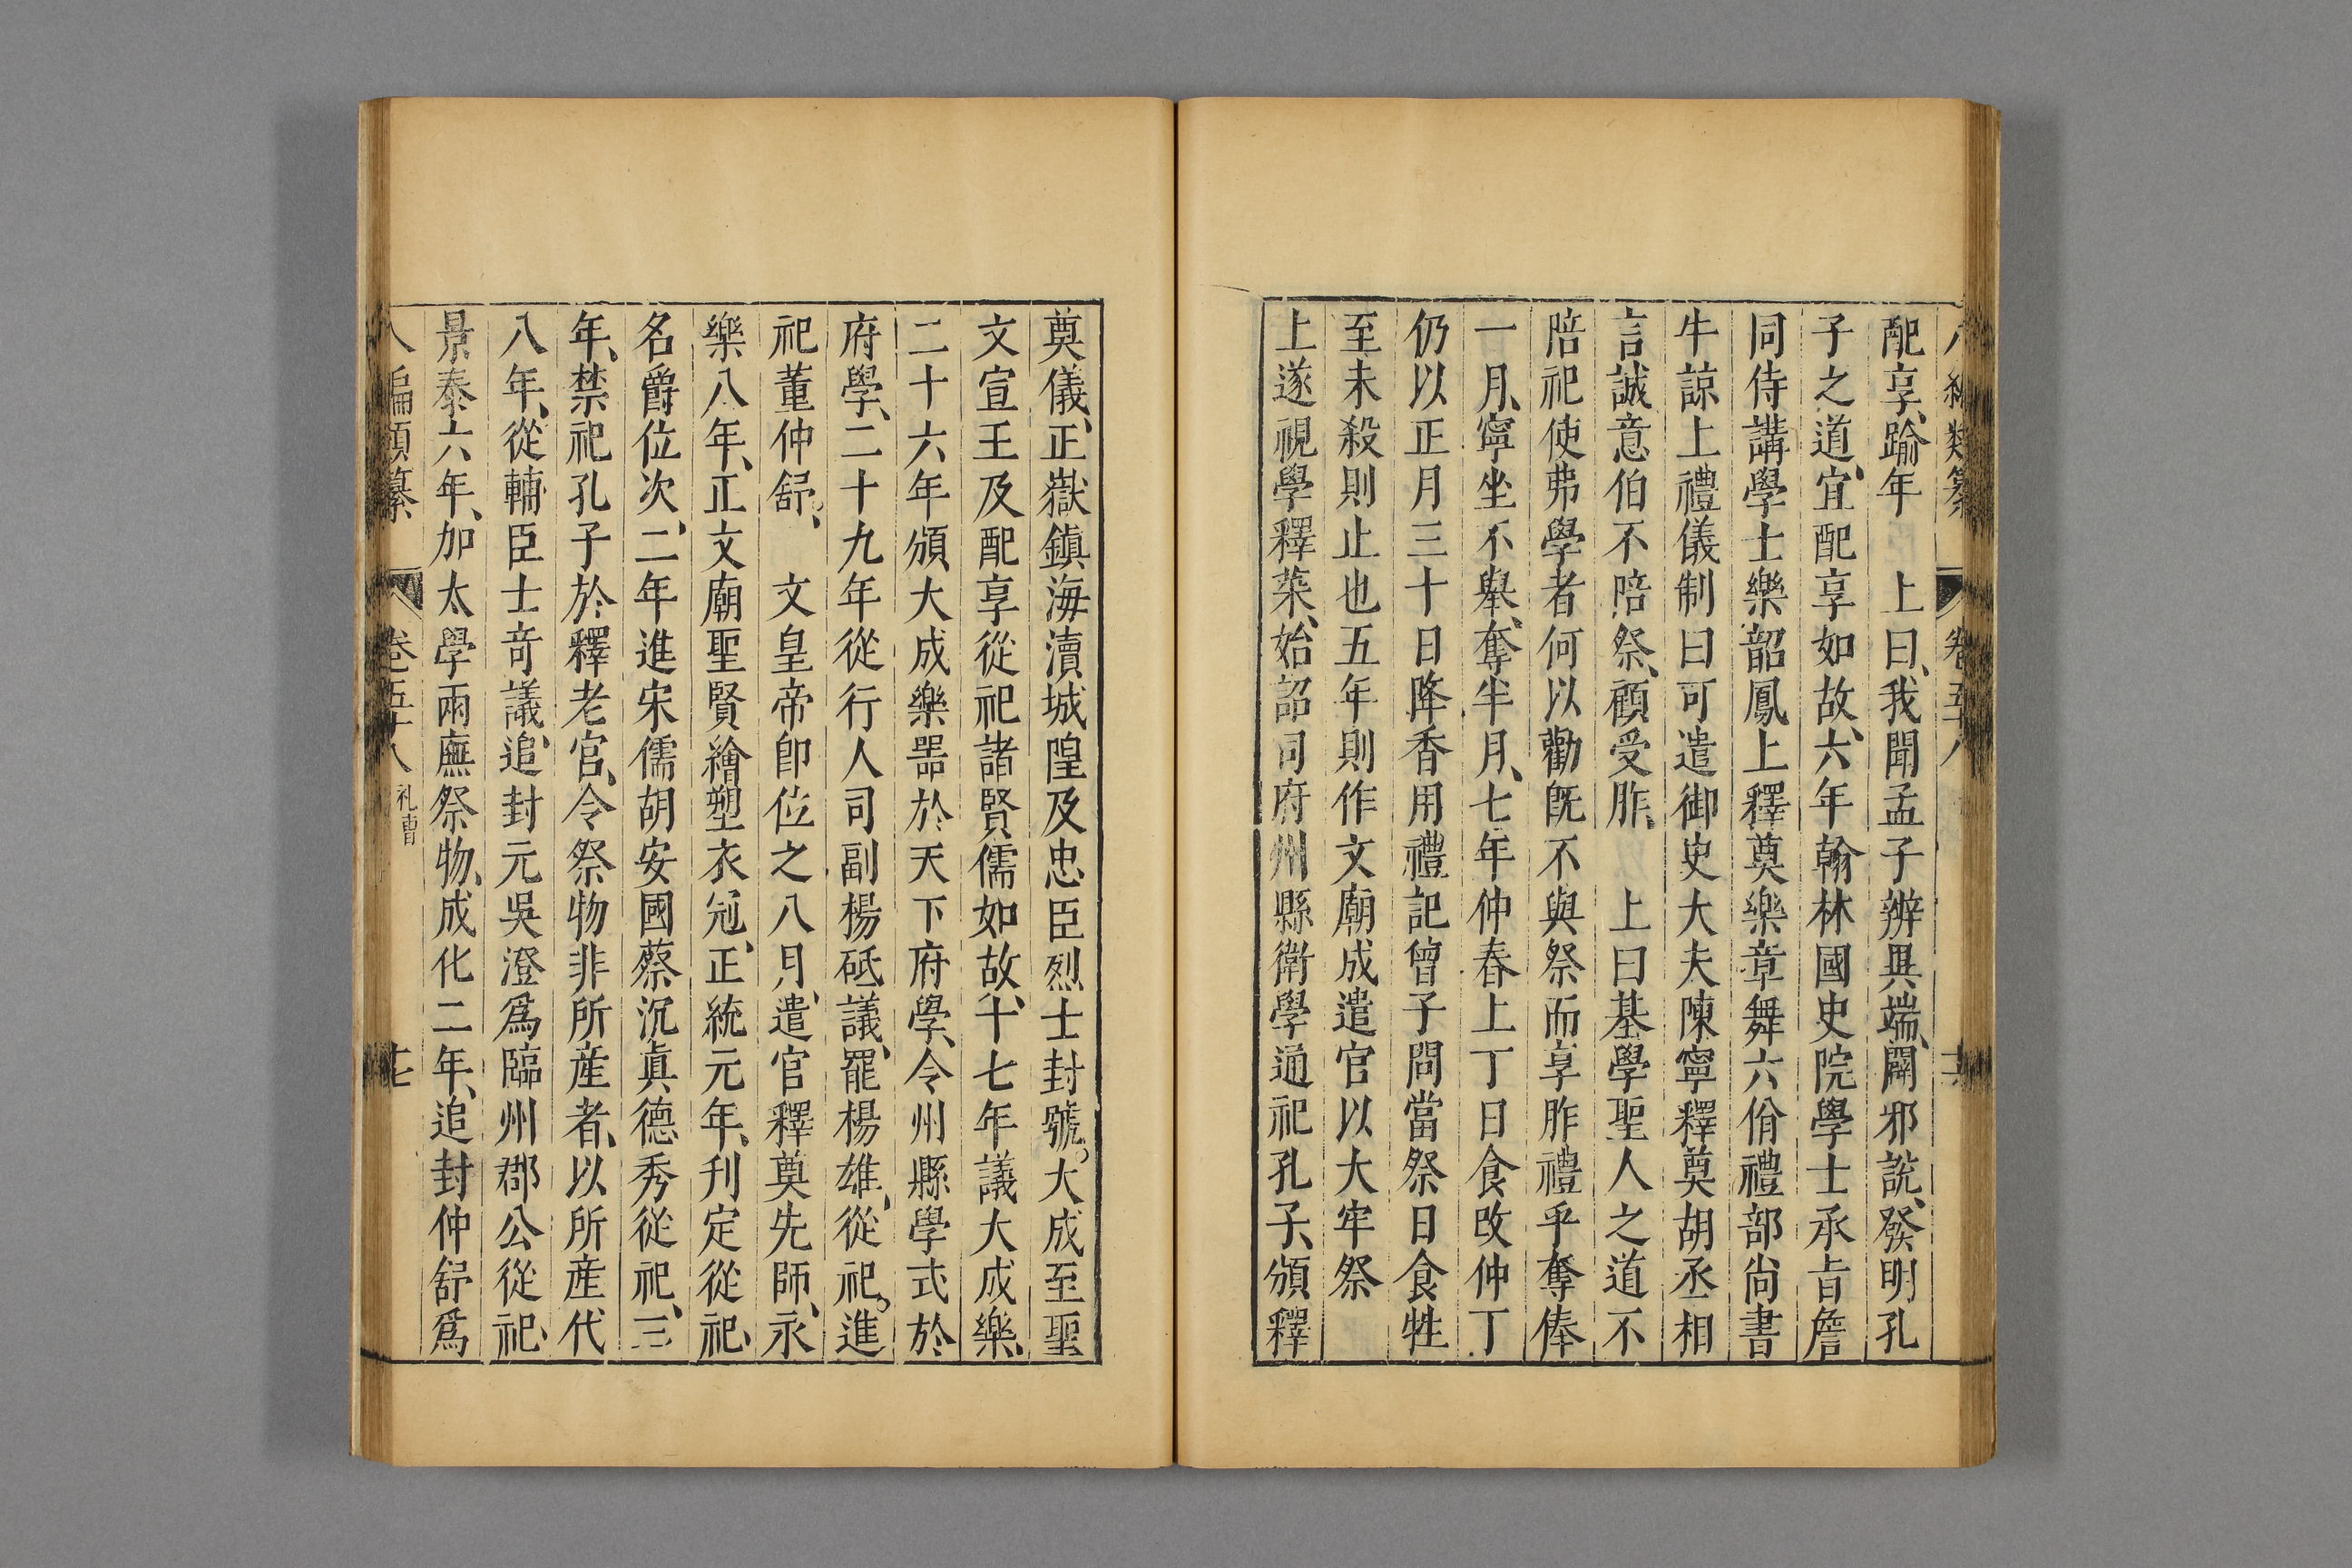 配享、踰年　上曰、我聞孟子辨異端、闢邪說、發明孔
子之道、宜配享如故、六年翰林國史院學士承旨詹
同侍講學士樂韶鳳上釋奠樂章舞六佾禮部尚書
牛諒上禮儀制曰可遣御史大夫陳寧釋奠胡丞相
言誠意伯不陪祭、顧受胙、　上曰基學聖人之道不
陪祀使弗學者何以勸旣不與祭而享胙禮乎奪俸
一月、寧坐不舉、奪半月、七年仲春上丁日食改仲丁
仍以正月三十日降香用禮記曾子問當祭日食牲
至未殺則止也五年則作文廟成遣官以大牢祭
上遂視學釋菜、始詔司府州縣衛學通祀孔子、頒釋
奠儀、正嶽鎮海瀆城隍及忠臣烈士封號。大成至聖
文宣王及配享從祀諸賢儒如故、十七年議大成樂、
二十六年頒大成樂噐於天下府學、令州縣學式於
府學、二十九年從行人司副楊砥議、罷楊雄、從祀。進
祀董仲舒。、　文皇帝卽位之八月、遣官釋奠先師、永
樂八年、正文廟聖賢繪塑衣冠、正統元年、刋定從祀、
名爵位次、二年進宋儒胡安國蔡沉眞德秀從祀、三
年、禁祀孔子於釋老宫、令祭物非所産者、以所産代
八年、從輔臣士竒議、追封元吳澄爲臨州郡公從祀、
景泰六年、加太學兩廡祭物、成化二年、追封仲舒爲
編類纂　卷五十八　礼曹　十七